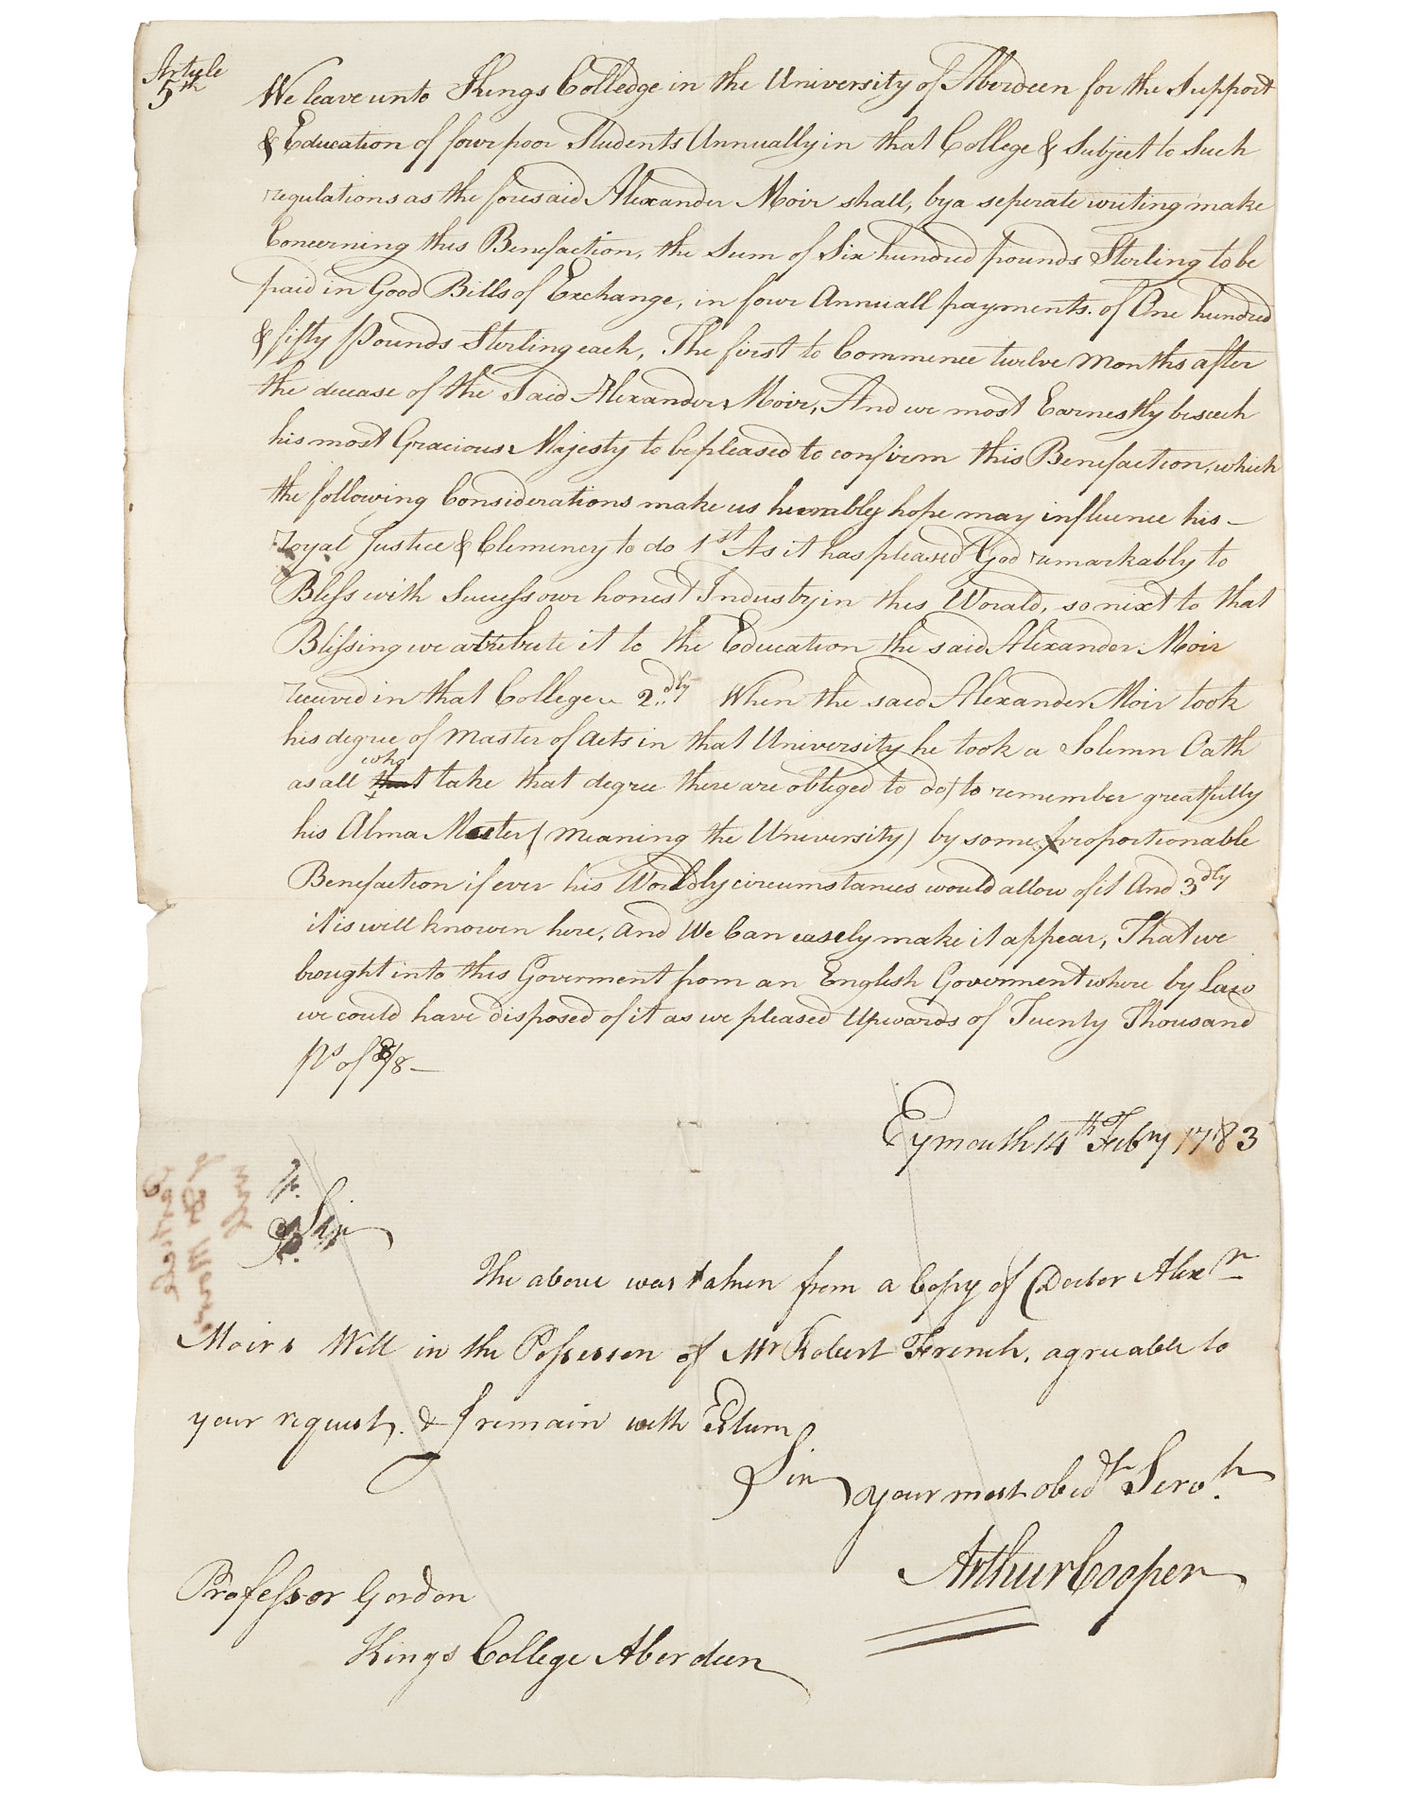 Article
5th
We leave unto Kings Colledge in the University of Aberdeen for the Support
& Education of four poor Students Annually in that College & Subject to Such
regulations as the foresaid Alexander Moir shall, by a seperate writing make
Concerning this Benefaction, the Sum of Six hundred pounds Sterling to be
paid in Good Bills of Exchange, in four Annuall payments of One hundred
& fifty Pounds Sterling each, The first to Commence twelve Months after
the decease of the Said Alexander Moir, And we most Earnestly beseech
his most Gracious Majesty to be pleased to confirm this Benefaction, which
the following Considerations make us humbly hope may influence his –
royal Justice & Clemency to do 1st As it has pleased God remarkably to
Bless with Success our honest Industry in this World, so nixt to that
Blissing we atribute it to the Education the said Alexander Moir
received in that College 2dly When the said Alexander Moir took
his degree of Master of Arts in that University he took a Solemn Oath
as all who take that degree there are obliged to do) to remember greatfully
his Alma Mater (meaning the University) by some proportionable
Benefaction if ever his Worldly circumstances would allow of it And 3dly
it is well knowen here, and We Can easely make it appear, That we
brought into this Goverment from an English Goverment where by Law
we could have disposed of it as we pleased Upwards of Twenty Thousand
ps of 8/8 –
Eymouth 14th Febry 1783
Sir
The above was taken from a Copy of Doctor Alexr
Moirs Will in the Possession of Mr Robert French, agreeable to
your request, & I remain with Esteem
Sir your most obedt Servt
Arthur Cooper
Professor Gordon
Kings College Aberdeen